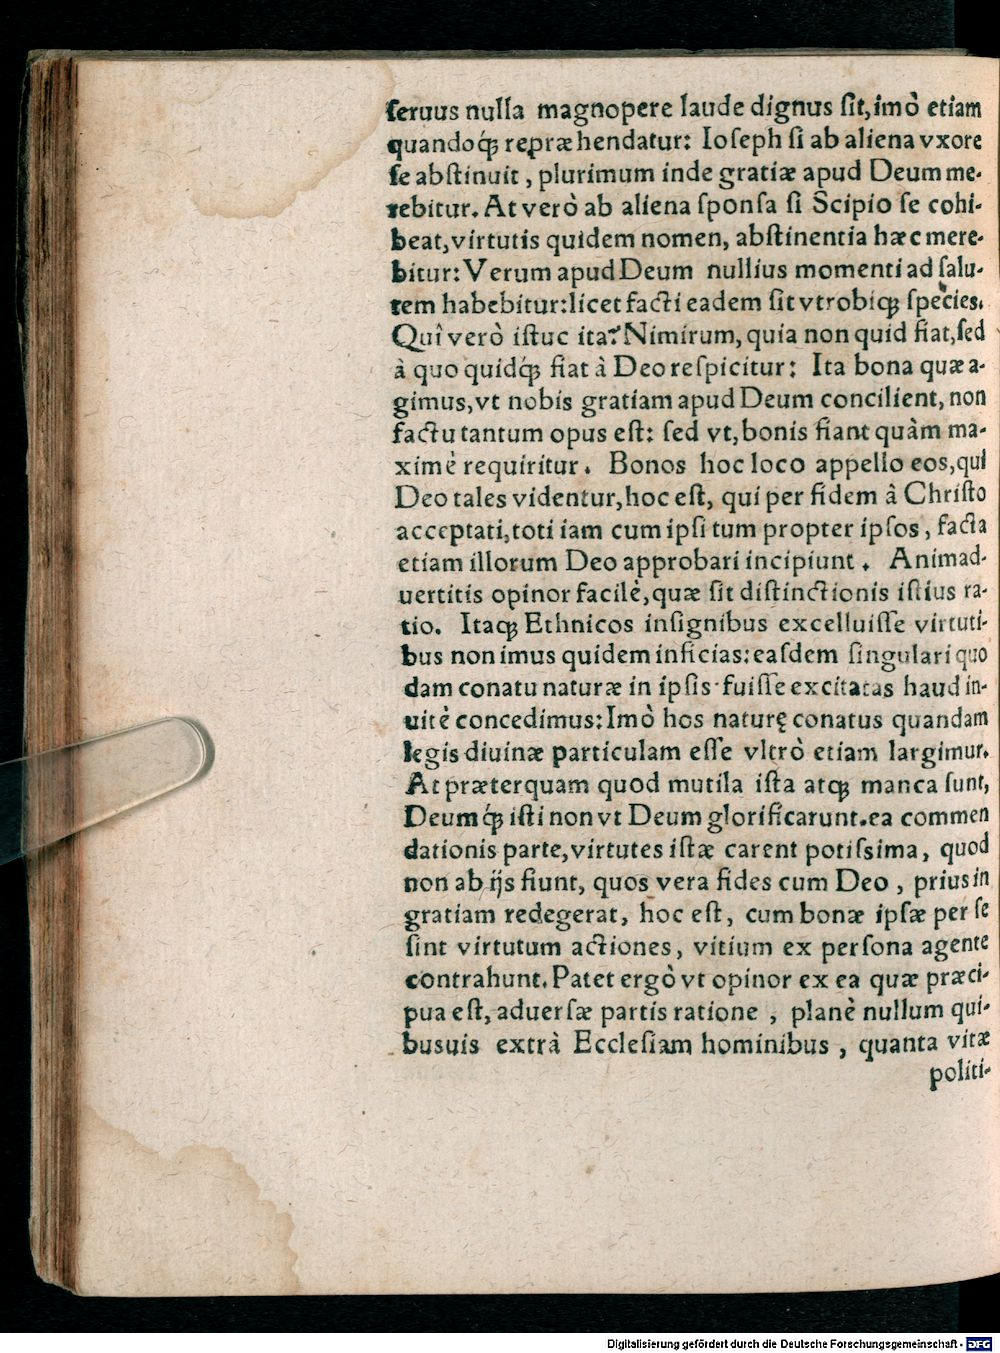 ſeruus nulla magnopere laude dignus ſit, imò etiam
quandoq́; repræhendatur: Ioſeph ſi ab aliena vxore
ſe abſtinuit, plurimum inde gratiæ apud Deum me-
rebitur. At verò ab aliena ſponſa ſi Scipio ſe cohi-
beat, virtutis quidem nomen, abſtinentia hæc mere-
bitur: Verum apud Deum nullius momenti ad ſalu-
tem habebitur: licet facti eadem ſit vtrobiq; ſpecies.
Quî verò iſtuc ita? Nimirum, quia non quid fiat, ſed
à quo quidq́; fiat à Deo reſpicitur: Ita bona quæ a-
gimus, vt nobis gratiam apud Deum concilient, non
factu tantum opus eſt: ſed vt, bonis fiant quàm ma-
ximè requiritur. Bonos hoc loco appello eos, qui
Deo tales videntur, hoc eſt, qui per fidem à Chriſto
acceptati, toti iam cum ipſi tum propter ipſos, facta
etiam illorum Deo approbari incipiunt. Animad-
uertitis opinor facilè, quæ ſit diſtinctionis iſtius ra-
tio. Itaq; Ethnicos inſignibus excelluiſſe virtuti-
bus non imus quidem inficias: eaſdem ſingulari quo
dam conatu naturæ in ipſis fuiſſe excitatas haud in-
uitè concedimus: Imò hos naturę conatus quandam
legis diuinæ particulam eſſe vltrò etiam largimur.
At præterquam quod mutila iſta atq; manca ſunt,
Deumq́; iſti non vt Deum glorificarunt. ea commen
dationis parte, virtutes iſtæ carent potiſsima, quod
non ab ijs fiunt, quos vera fides cum Deo, prius in
gratiam redegerat, hoc eſt, cum bonæ ipſæ per ſe
ſint virtutum actiones, vitium ex perſona agente
contrahunt. Patet ergò vt opinor ex ea quæ præci-
pua eſt, aduerſæ partis ratione, planè nullum qui-
busuis extrà Eccleſiam hominibus, quanta vitæ
politi-
Digitalisierung gefördert durch die Deutsche Forschungsgemeinschaft - DFG